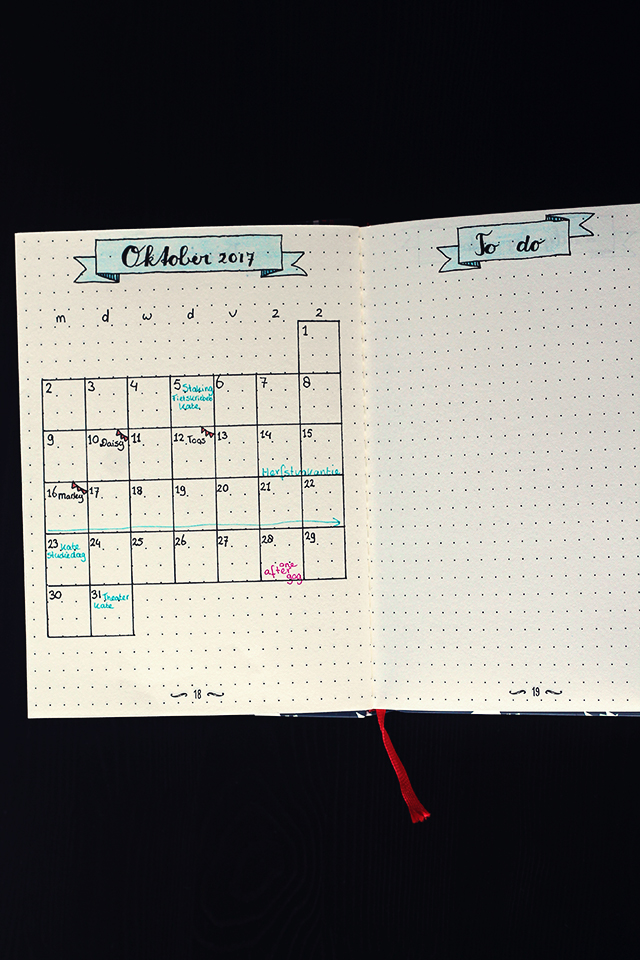 Oktober 2017
To do
m d w d v z z
1
2 3 4 5 Staking 6 7 8
Fietskeuken
Kate
9 10 Daisy 11 12 Toos 13 14 15
Herfstvakantie
16 Marley 17 18 19 20 21 22
23 Kate 24 25 26 27 28 29
Studiedag
one
after
gog
30 31 Theater
Kate
18
19